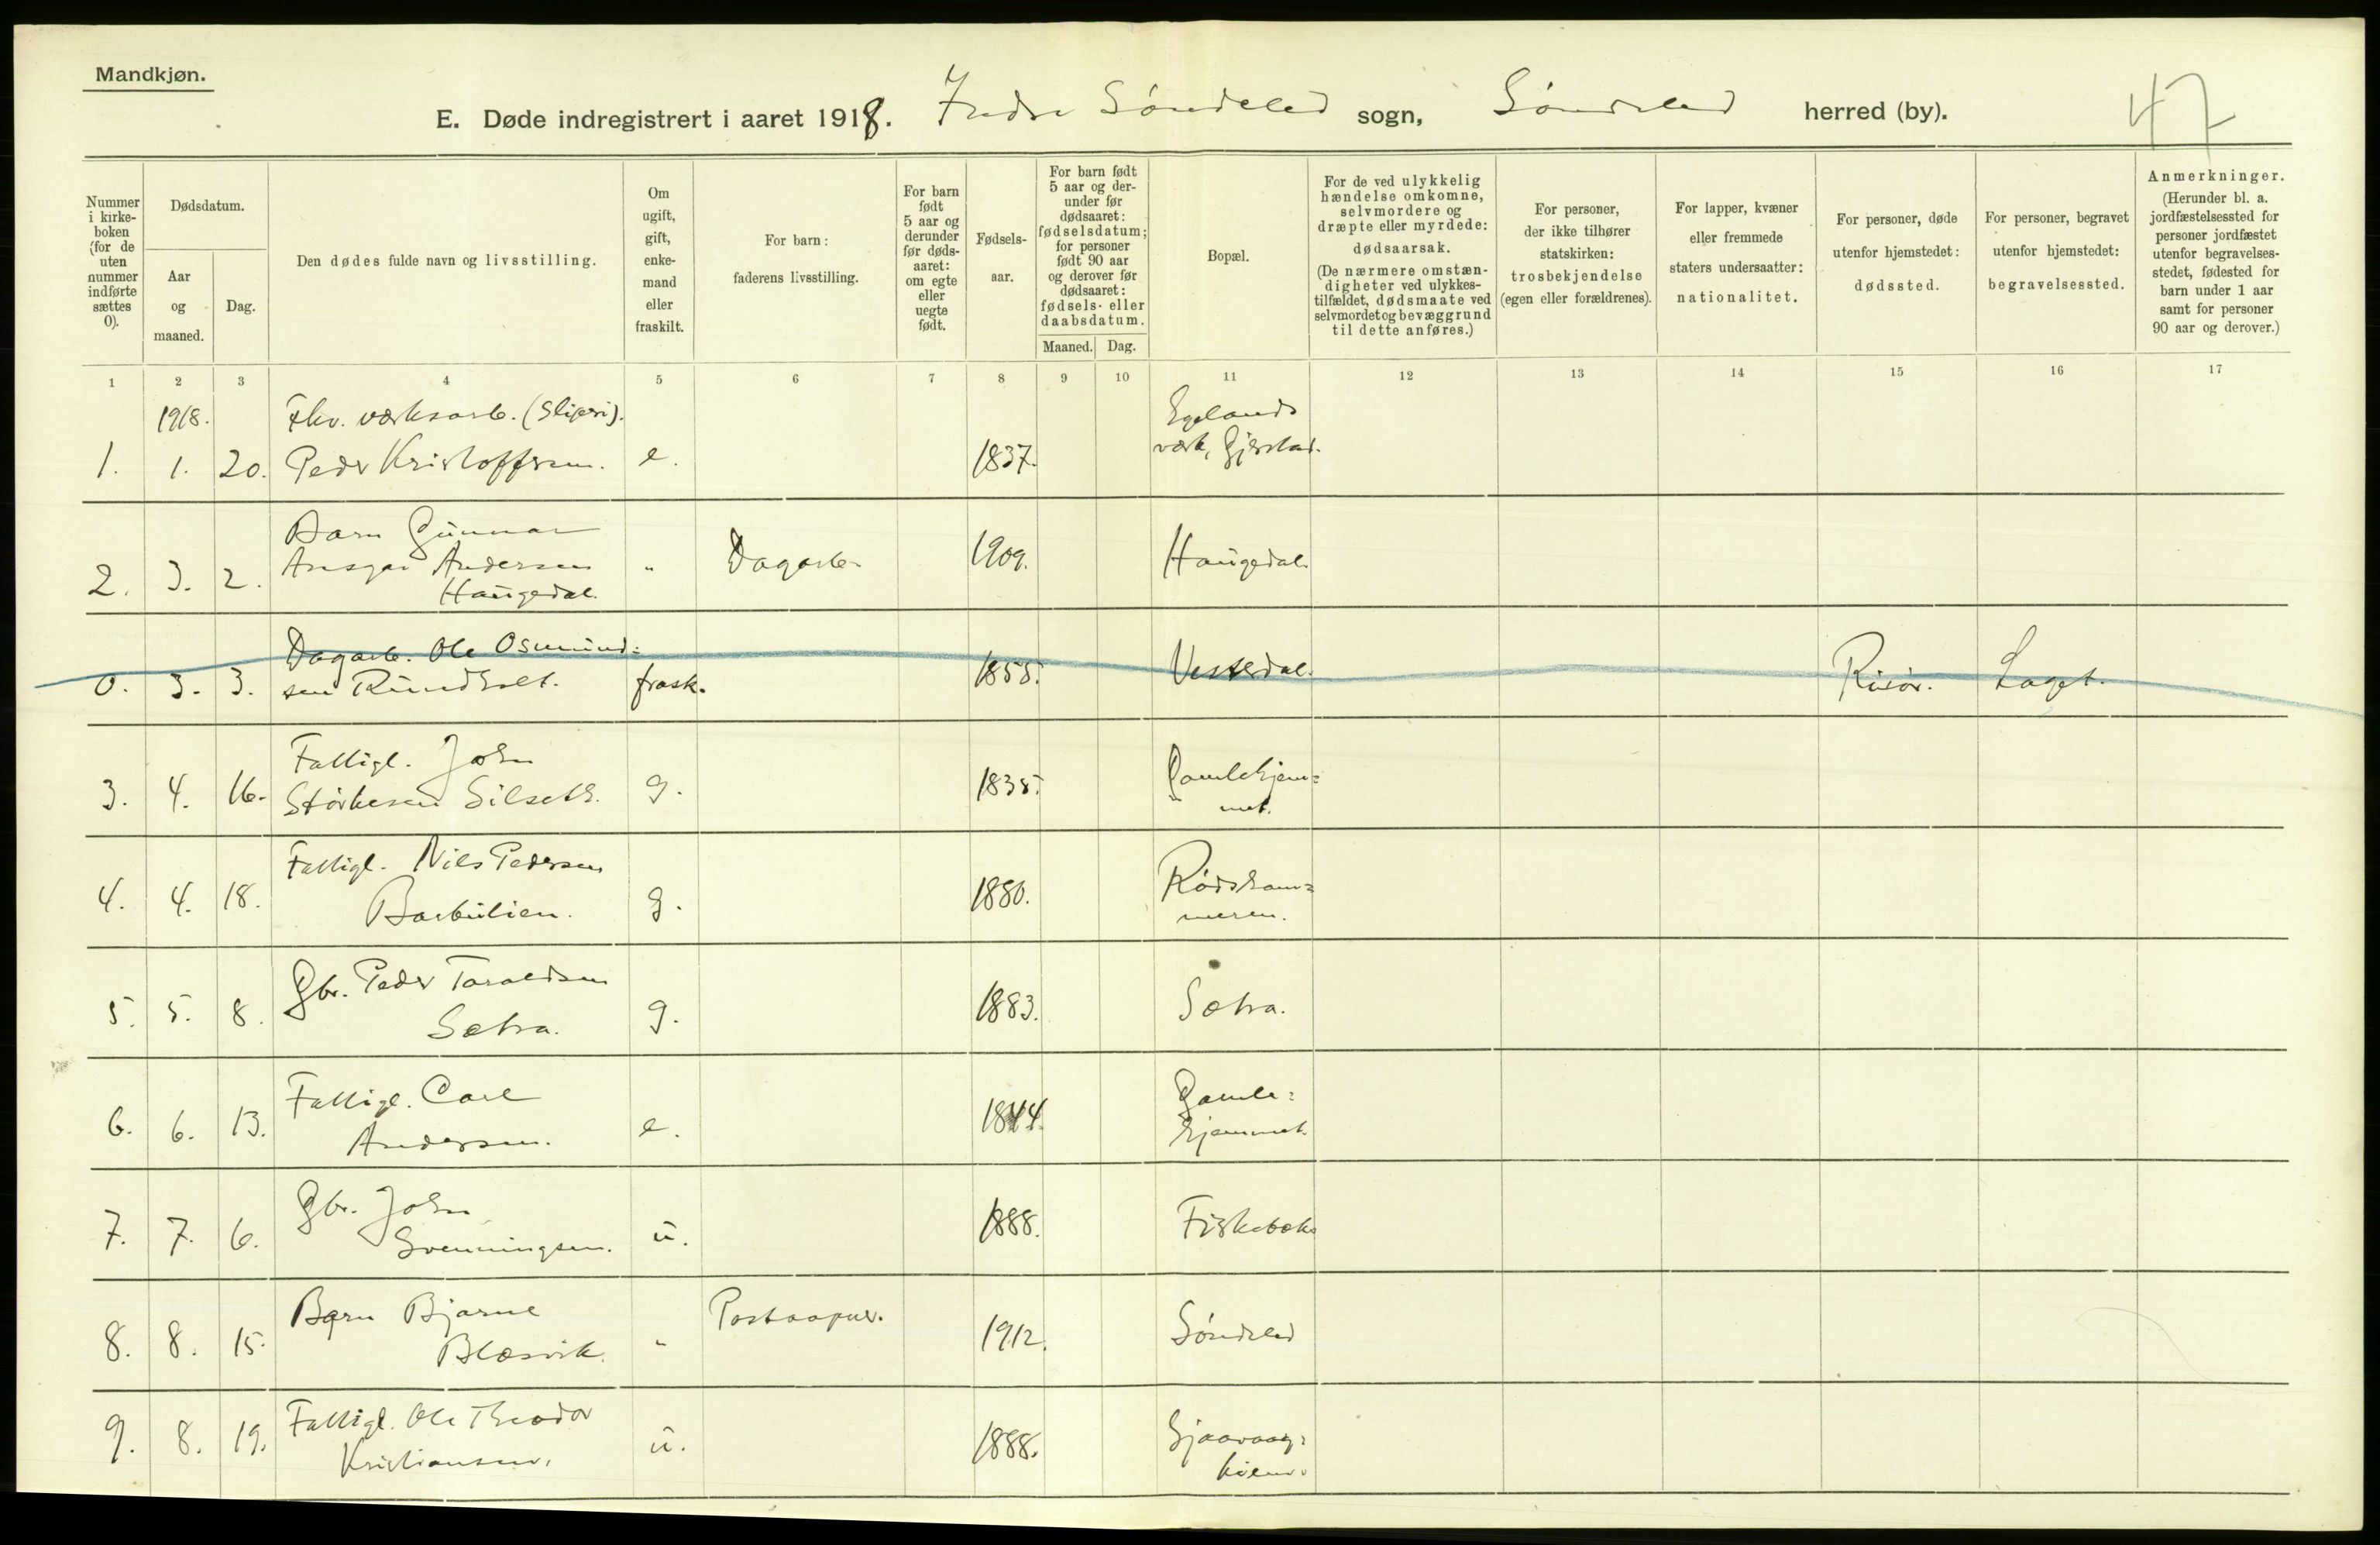 Mandkjøn.
E. Døde indregistrert i aaret 1918. Indre Søndeled sogn, Søndeled herred (by).
47
Nummer i kirke- boken (for de uten nummer indførte sættes 0).
Dødsdatum.
Aar og maaned.
Dag.
Den dødes fulde navn og livsstilling.
Om ugift, gift, enke- mand eller fraskilt.
For barn: faderens livsstilling.
For barn født 5 aar og derunder før døds- aaret: om egte eller uegte født.
Fødsels- aar.
For barn født 5 aar og der- under før dødsaaret: fødselsdatum; for personer født 90 aar og derover før dødsaaret: fødsels- eller daabsdatum.
Maaned. Dag.
Bopæl.
For de ved ulykkelig hændelse omkomne, selvmordere og dræpte eller myrdede: dødsaarsak. (De nærmere omstæn- digheter ved ulykkes- tilfældet, dødsmaate ved selvmordet og bevæggrund til dette anføres.)
For personer, der ikke tilhører statskirken: trosbekjendelse (egen eller forældrenes).
For lapper, kvæner eller fremmede staters undersaatter: nationalitet.
For personer, døde utenfor hjemstedet: dødssted.
For personer, begravet utenfor hjemstedet: begravelsessted.
Anmerkninger. (Herunder bl. a. jordfæstelsessted for personer jordfæstet utenfor begravelses- stedet, fødested for barn under 1 aar samt for personer 90 aar og derover.)
1 2 3 4 5 6 7 8 9 10 11 12 13 14 15 16 17
1918. Fhv. værksarb. (Sliperi). Egelands
1. 1. 20. Peder Kristoffersen. e. 1837. værk, Gjerstad.
Barn Gunnar
2. 3. 2. Ansgar Andersen " Dagarb. 1909. Haugedal.
Haugedal.
Dagarb. Ole Osmund=
0. 3. 3. sen Rundholt. frask. 1855. Vestedal. Risør. Laget.
Fattigl. John Gamlehjem=
3. 4. 16. Størkesen Silseth. g. 1835. met.
Fattigl. Nils Pedersen Rødsham=
4. 4. 18. Barbulien. g. 1880. meren.
Gbr. Peder Taraldsen
5. 5. 8. Sætra. g. 1883. Sætra.
Fattigl. Carl Gamle=
6. 6. 13. Andersen. e. 1844. hjemmet.
Gbr. John
7. 7. 6. Svenningsen. u. 1888. Fiskebæk
Barn Bjarne Postaapner.
8. 8. 15. Blæsvik. " 1912. Søndeled
Fattigl. Ole Theodor Sjaavaag=
9. 8. 19. Kristiansen. u. 1888. kilen.